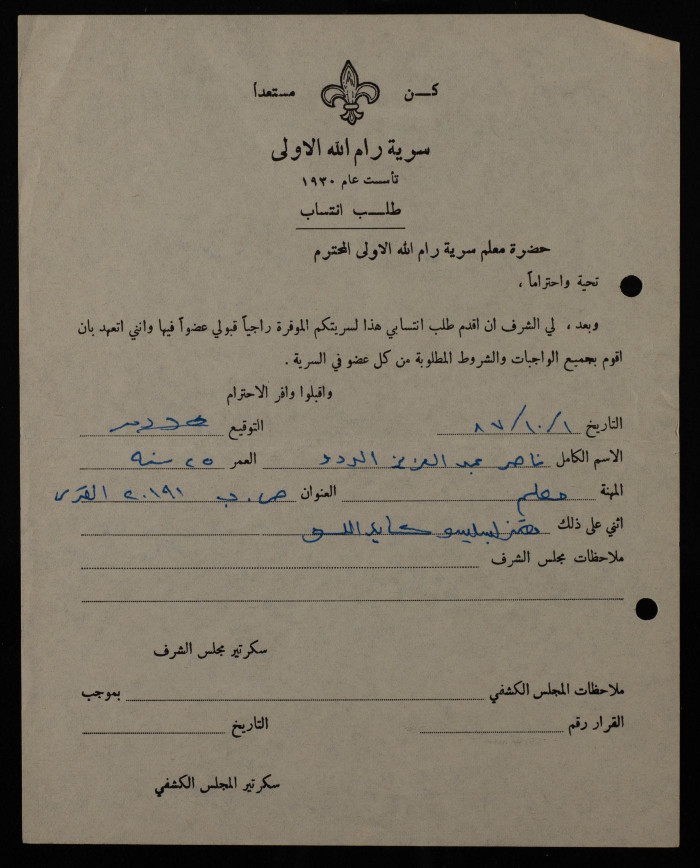 كن مستعداً
سرية رام الله الاولى
تأسست عام ١٩٣٠
طلب انتساب
حضرة معلم سرية رام الله الاولى المحترم
تحية واحتراماً ،
وبعد ، لي الشرف ان اقدم طلب انتسابي هذا لسريتكم الموقرة راجياً قبولي عضواً فيها وانني اتعهد بان
اقوم بجميع الواجبات والشروط المطلوبة من كل عضو في السرية .
واقبلوا وافر الاحترام
التاريخ ٨٧/١٠/١ التوقيع
الاسم الكامل ناصر عبد العزيز العمر ٢٥ سنه
المهنة معلم العنوان ص.ب ٢٠١٩١ القدس
اثني على ذلك
ملاحظات مجلس الشرف
سكرتير مجلس الشرف
ملاحظات المجلس الكشفي بموجب
القرار رقم التاريخ
سكرتير المجلس الكشفي